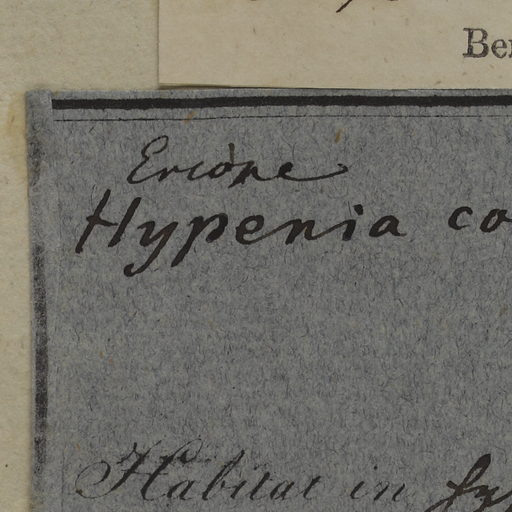 Ber
Erione
Hypenia co
Habitat in